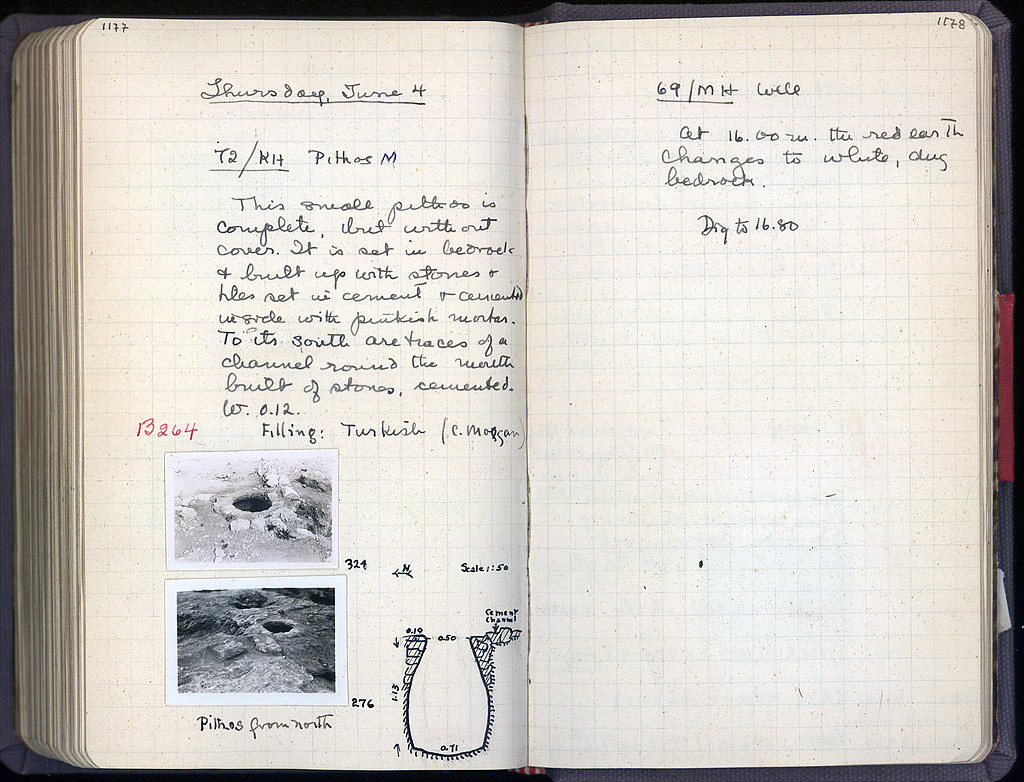 1177
Thursday, June 4
72/KH Pithos M
This small pithos is
complete, but without
cover. It is set in bedrock
& built up with stones &
tiles set in cement & cemented
inside with pinkish mortar.
To its south are traces of a
channel round the mouth
built of stones, cemented.
W. 0.12.
B264
Filling: Turkish (C. Morgan)
324
N
Scale 1:50
Cement
Channel
0.10
0.50
1.13
0.71
276
Pithos from north
1178
69/MH Well
At 16.00 m. the red earth
changes to white, dug
bedrock.
Dig to 16.80